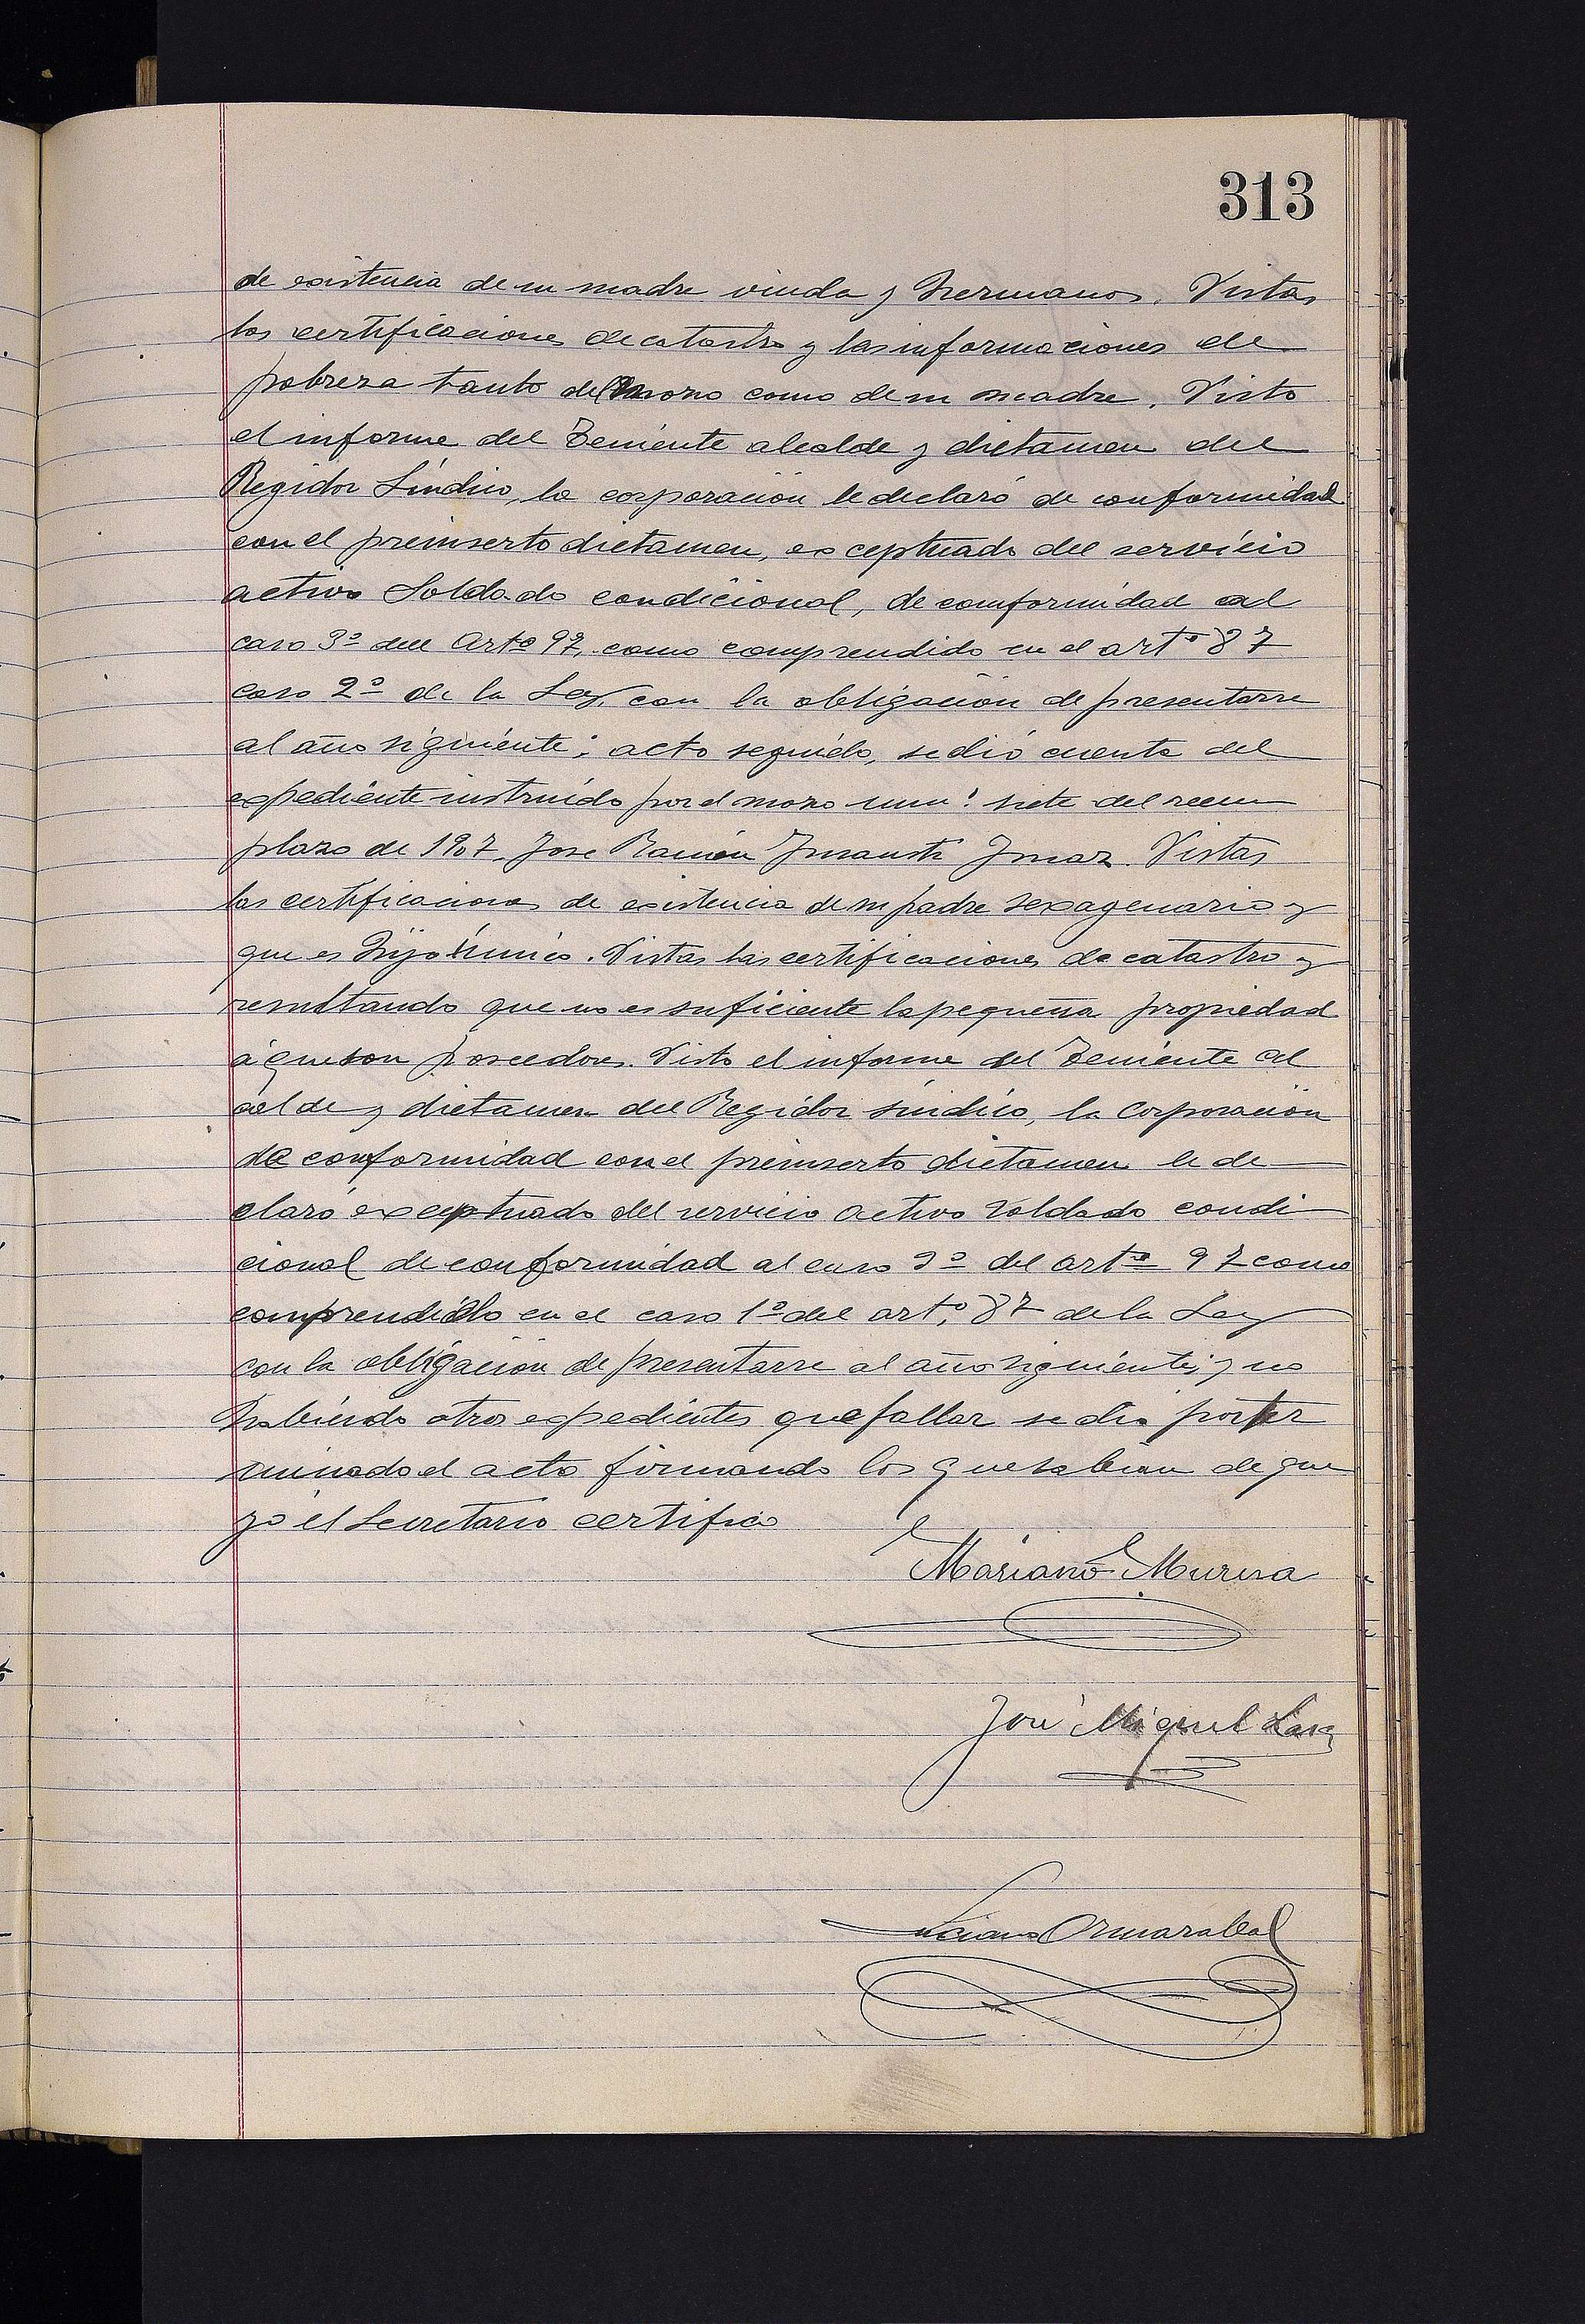 313
de existencia de su madre viuda y hermanos. Vistas
las certificaciones de catastro y las informaciones de
pobreza tanto del mozo como de su madre. Visto
el informe del Teniente alcalde y dictamen del
Regidor Síndico, la corporación le declaró de conformidad
con el preinserto dictamen, exceptuado del servicio
activo Soldado condicional, de conformidad al
caso 3º del Artº 97, como comprendido en el artº 87
caso 2º de la Ley, con la obligación de presentarse
al año siguiente; acto seguido, se dió cuenta del
expediente instruído por el mozo num: siete del reem
plazo de 1907, Jose Ramón Insausti Imaz. Vistas
las certificaciones de existencia de su padre sexagenario y
que es hijo único. Vistas las certificaciones de catastro y
resultando que no es suficiente la pequeña propiedad
á que son poseedores. Visto el informe del Teniente al
calde y dictamen del Regidor síndico, la Corporación
de conformidad con el preinserto dictamen le de
claró exceptuado del servicio activo Soldado condi
cional de conformidad al caso 3º del artº 97 como
comprendido en el caso 1º del artº 87 de la Ley
con la obligación de presentarse al año siguiente; y no
habiendo otros expedientes que fallar se dio por ter
minado el acto firmando los que sabían de que
yo el Secretario certifico
Mariano Murua
José Miguel
Luciano Ormazabal